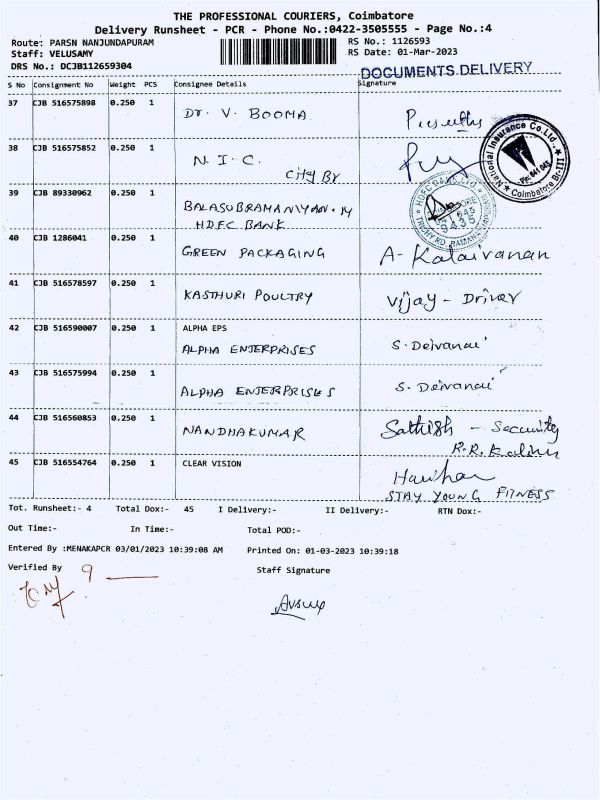 THE PROFESSIONAL COURIERS, Coimbatore
Delivery Runsheet - PCR - Phone No.:0422-3505555 - Page No.:4
Route: PARSN NANJUNDAPURAM RS No.: 1126593
Staff: VELUSAMY RS Date: 01-Mar-2023
DRS No.: DCJB112659304 DOCUMENTS DELIVERY
S No Consignment No Weight PCS Consignee Details Signature
37 CJB 516575898 0.250 1
Dr. V. BOOMA
38 CJB 516575852 0.250 1
N.I.C.
City Br
National Insurance Co.Ltd.,
Coimbatore Br-III
39 CJB 89330962 0.250 1
BALASUBRAMANIYAN.M
HDFC BANK
HDFC BANK LTD
9435
TRICHY RD. RAMANATHAPURAM
40 CJB 1286041 0.250 1
GREEN PACKAGING A- Kalaivanan
41 CJB 516578597 0.250 1
KASTHURI POULTRY Vijay - Driver
42 CJB 516590007 0.250 1 ALPHA EPS
ALPHA ENTERPRISES S. Deivanai
43 CJB 516575994 0.250 1
ALPHA ENTERPRISES S. Deivanai
44 CJB 516560853 0.250 1
NANDHAKUMAR Sathish - Security
45 CJB 516554764 0.250 1 CLEAR VISION
Harihar
STAY YOUNG FITNESS
Tot. Runsheet:- 4 Total Dox:- 45 I Delivery:- II Delivery:- RTN Dox:-
Out Time:- In Time:- Total POD:-
Entered By :MENAKAPCR 03/01/2023 10:39:08 AM Printed On: 01-03-2023 10:39:18
Verified By 9 Staff Signature